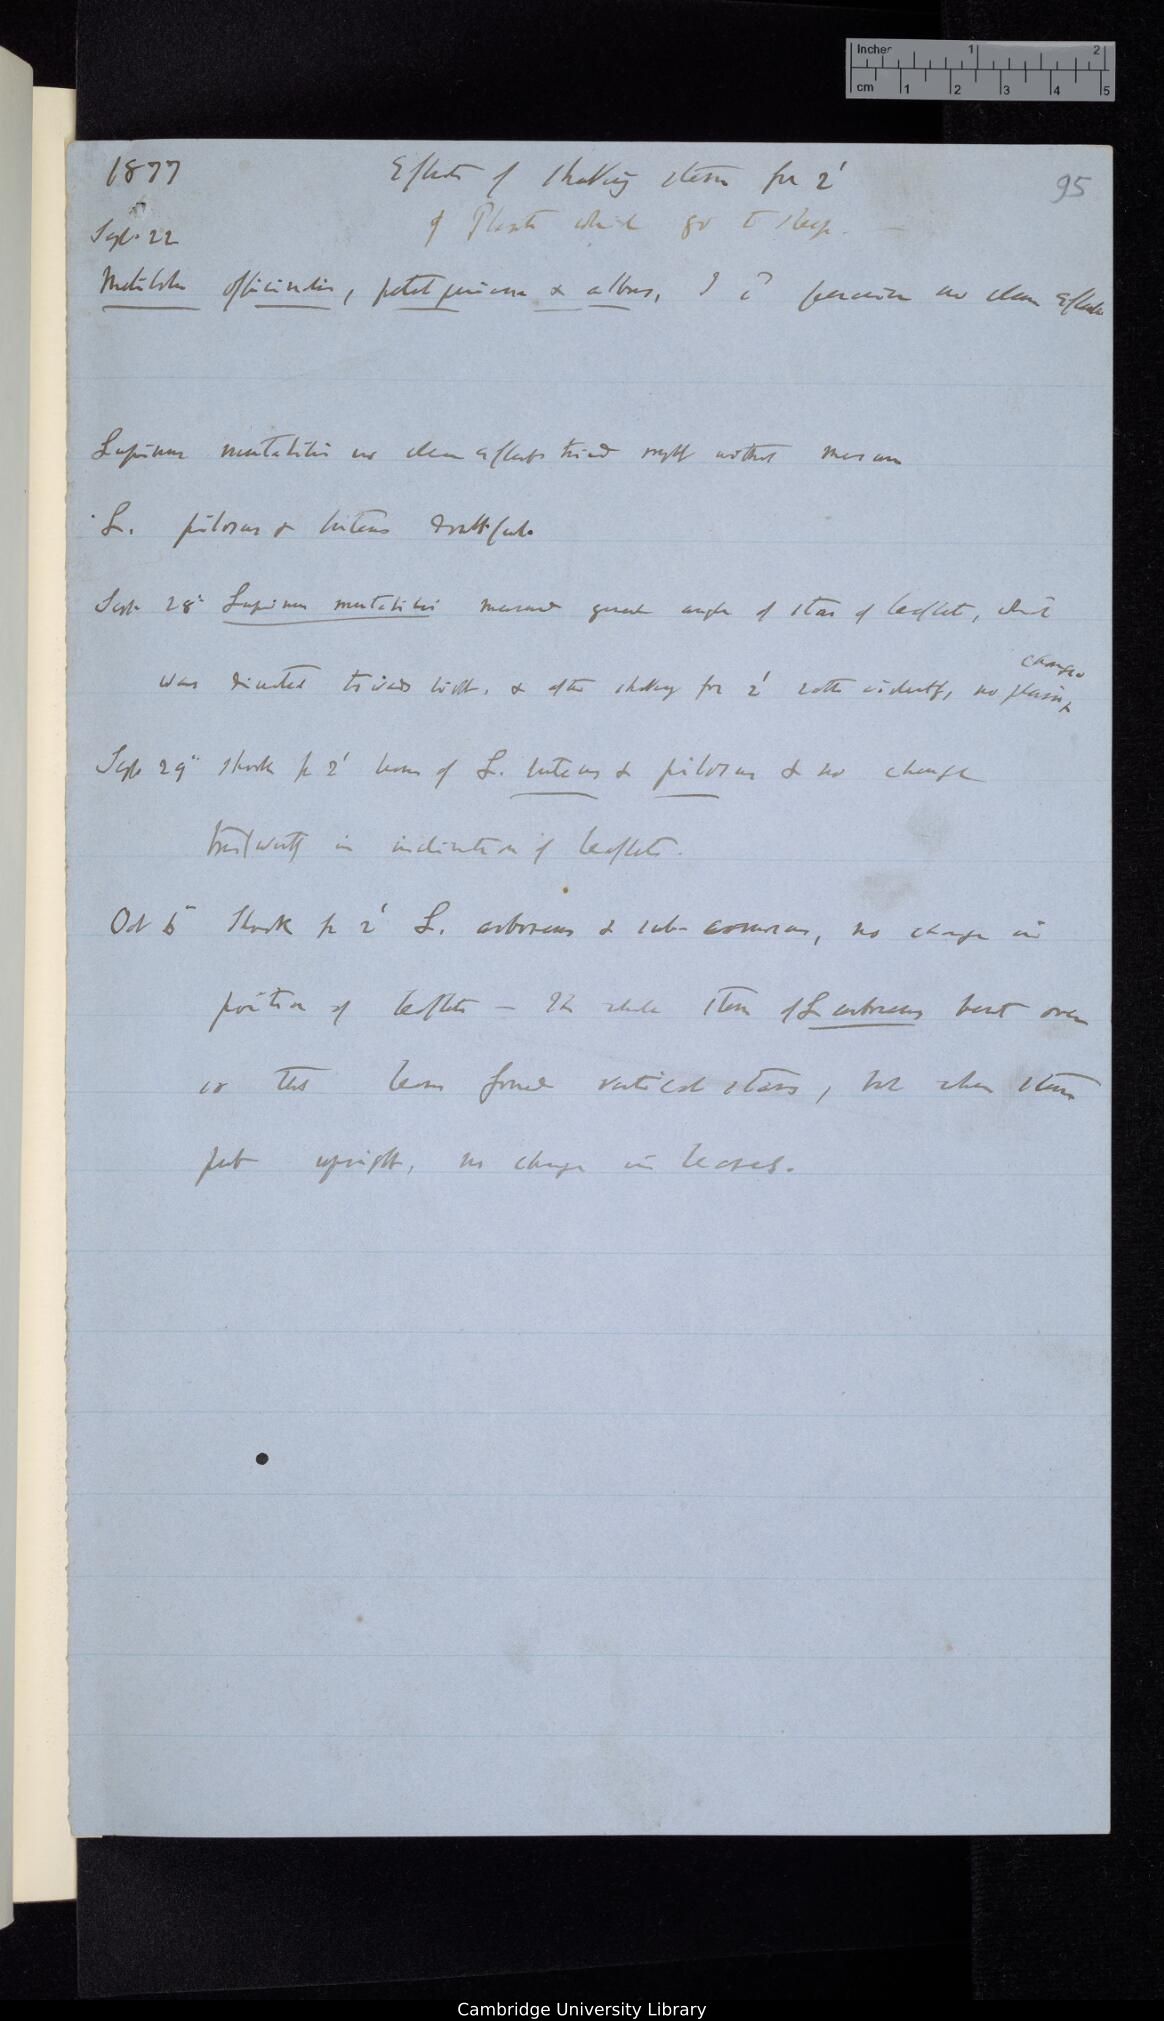 Inches 1 2
cm 1 2 3 4 5
1877 Effects of shaking stems for 2' 95
of Plants which go to sleep. —
Sept. 22
Melilotus officinalis, petitpierreana & albus, I cd perceive no clear effects
Lupinus mutabilis no clear effects tried roughly without measure
L. pilosus & luteus doubtful.
Sept 28th Lupinus mutabilis measured angle of star of leaflet, which
was directed towards light, & after shaking for 2' rather violently, no plain
change
Sept 29th shook for 2' leaves of L. luteus & pilosus & no change
trustworthy in inclination of leaflets.
Oct 6th Shook for 2' L. arboreus & sub-carnosus, no change in
position of leaflets — The whole stem of L arboreus bent over
so that leaves formed vertical stars, but when stem
put upright, no change in leaves.
Cambridge University Library